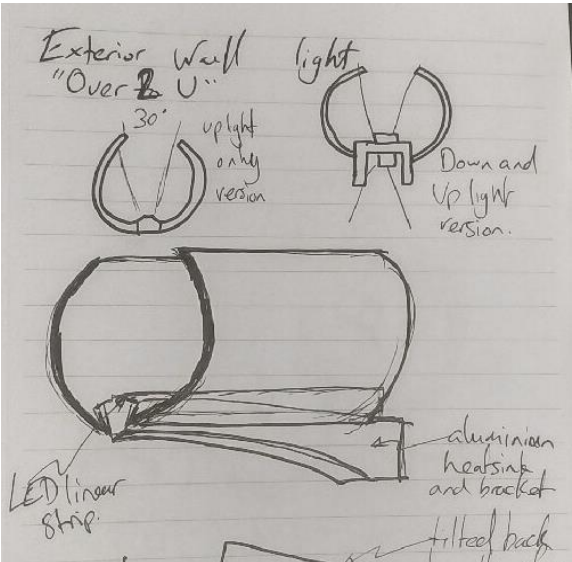 Exterior Wall light
"Over 2 U"
30°
uplight
only
version
Down and
Up light
version.
aluminian
heatsink
and bracket
LED linear
strip.
tilted back